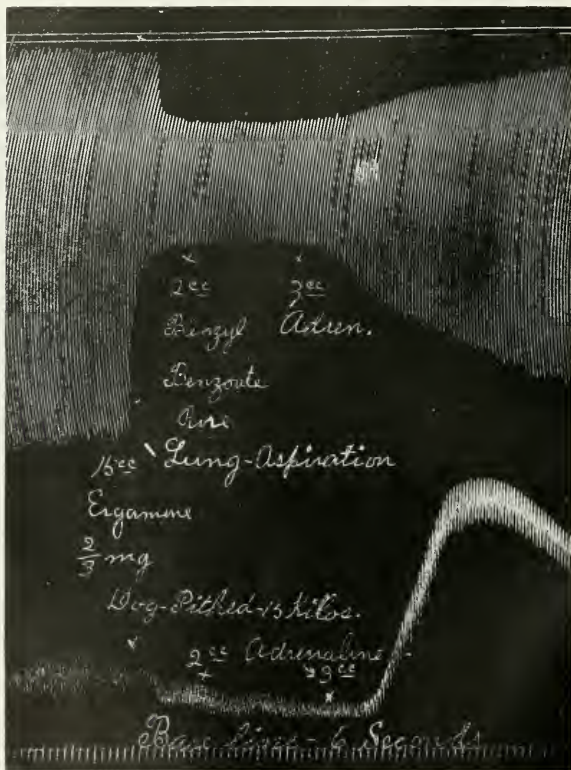 2cc
Benzyl
Benzoate
Pure
2cc
Adren.
Lung-Aspiration
15cc
Ergamine
2/3 mg
Dog-Pithed-15 Kilos.
2cc Adrenaline
Base Line - 6 Seconds